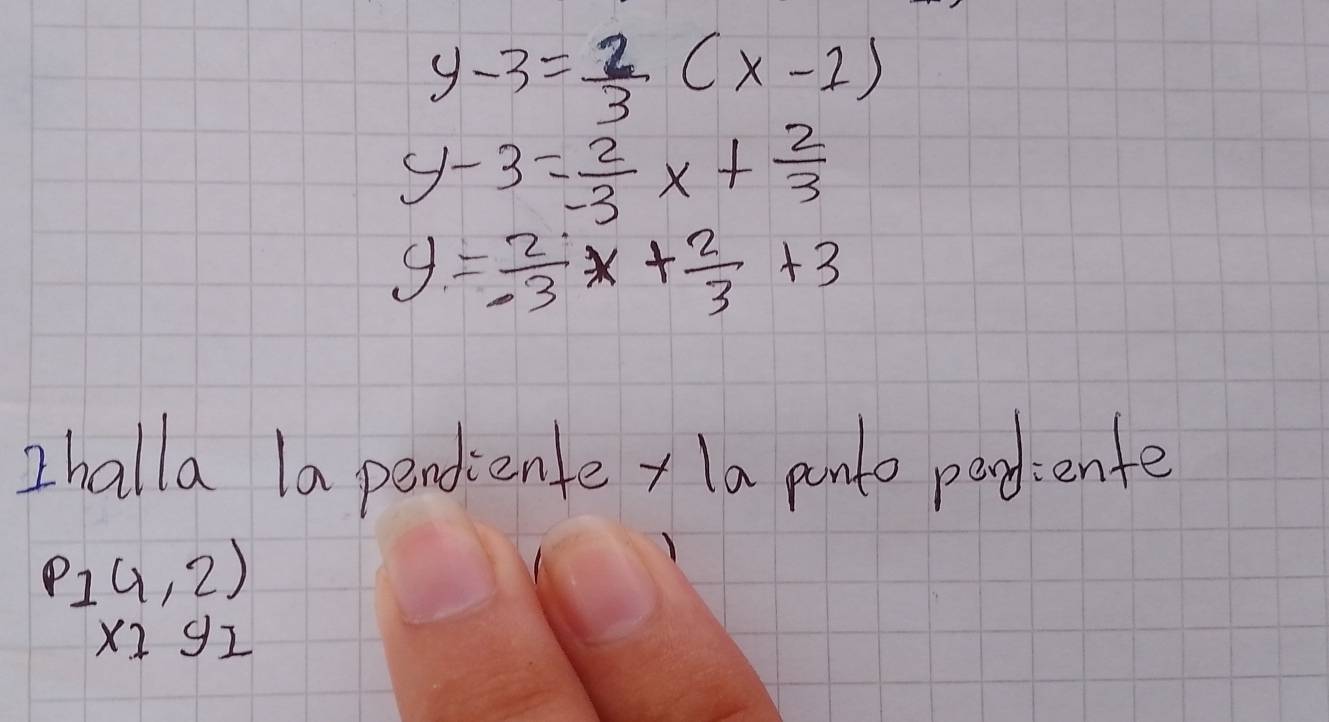 y-3=2/3 (x-1)
y-3=2/-3 x+2/3
y=2/-3 x+2/3+3
1 halla la pendiente y la punto pendiente
P1(4,2)
x1 y1